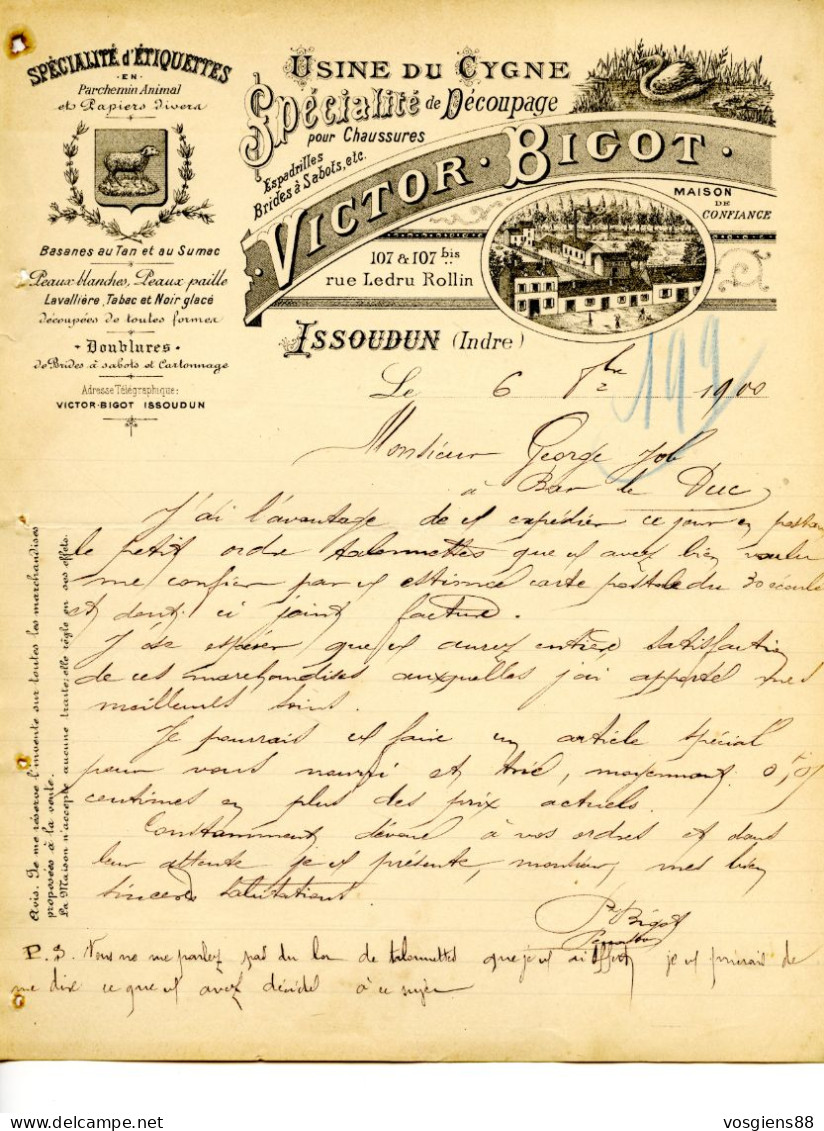 SPÉCIALITÉ d'ÉTIQUETTES
EN
Parchemin Animal
et Papiers divers
Basanes au Tan et au Sumac
Peaux blanches, Peaux paille
Lavallière, Tabac et Noir glacé
découpées de toutes formes
Doublures
de Brides à sabots et Cartonnage
Adresse Télégraphique:
VICTOR-BIGOT ISSOUDUN
USINE DU CYGNE
Spécialité de Découpage
pour Chaussures
Espadrilles
Brides à Sabots, etc.
VICTOR BIGOT
MAISON
DE
CONFIANCE
107 & 107 bis
rue Ledru Rollin
ISSOUDUN (Indre)
Le 6 1900
199
Monsieur George Job
à Bar le Duc
J'ai l'avantage de v expédier ce jour en
le petit ordre talonnettes que v avez bien voulu
me confier par v estimée carte postale du 30 écoulé
et dont ci joint facture.
J'ose espérer que v aurez entière satisfaction
de ces marchandises auxquelles j'ai apporté mes
meilleurs soins.
Je pourrais v faire un article spécial
pour vous nourri et trié, moyennant 0,05
centimes en plus des prix actuels.
Constamment dévoué à vos ordres et dans
leur attente je v présente, monsieur, mes bien
sincères salutations
Bigot
P.S. Vous ne me parlez pas du lot de talonnettes que je v ai offert je v prierais de
me dire ce que v avez décidé à ce sujet
Avis. Je me réserve l'invente sur toutes les marchandises
proposées à la vente.
La Maison n'accepte aucune traite; elle règle en ses effets.
vosgiens88